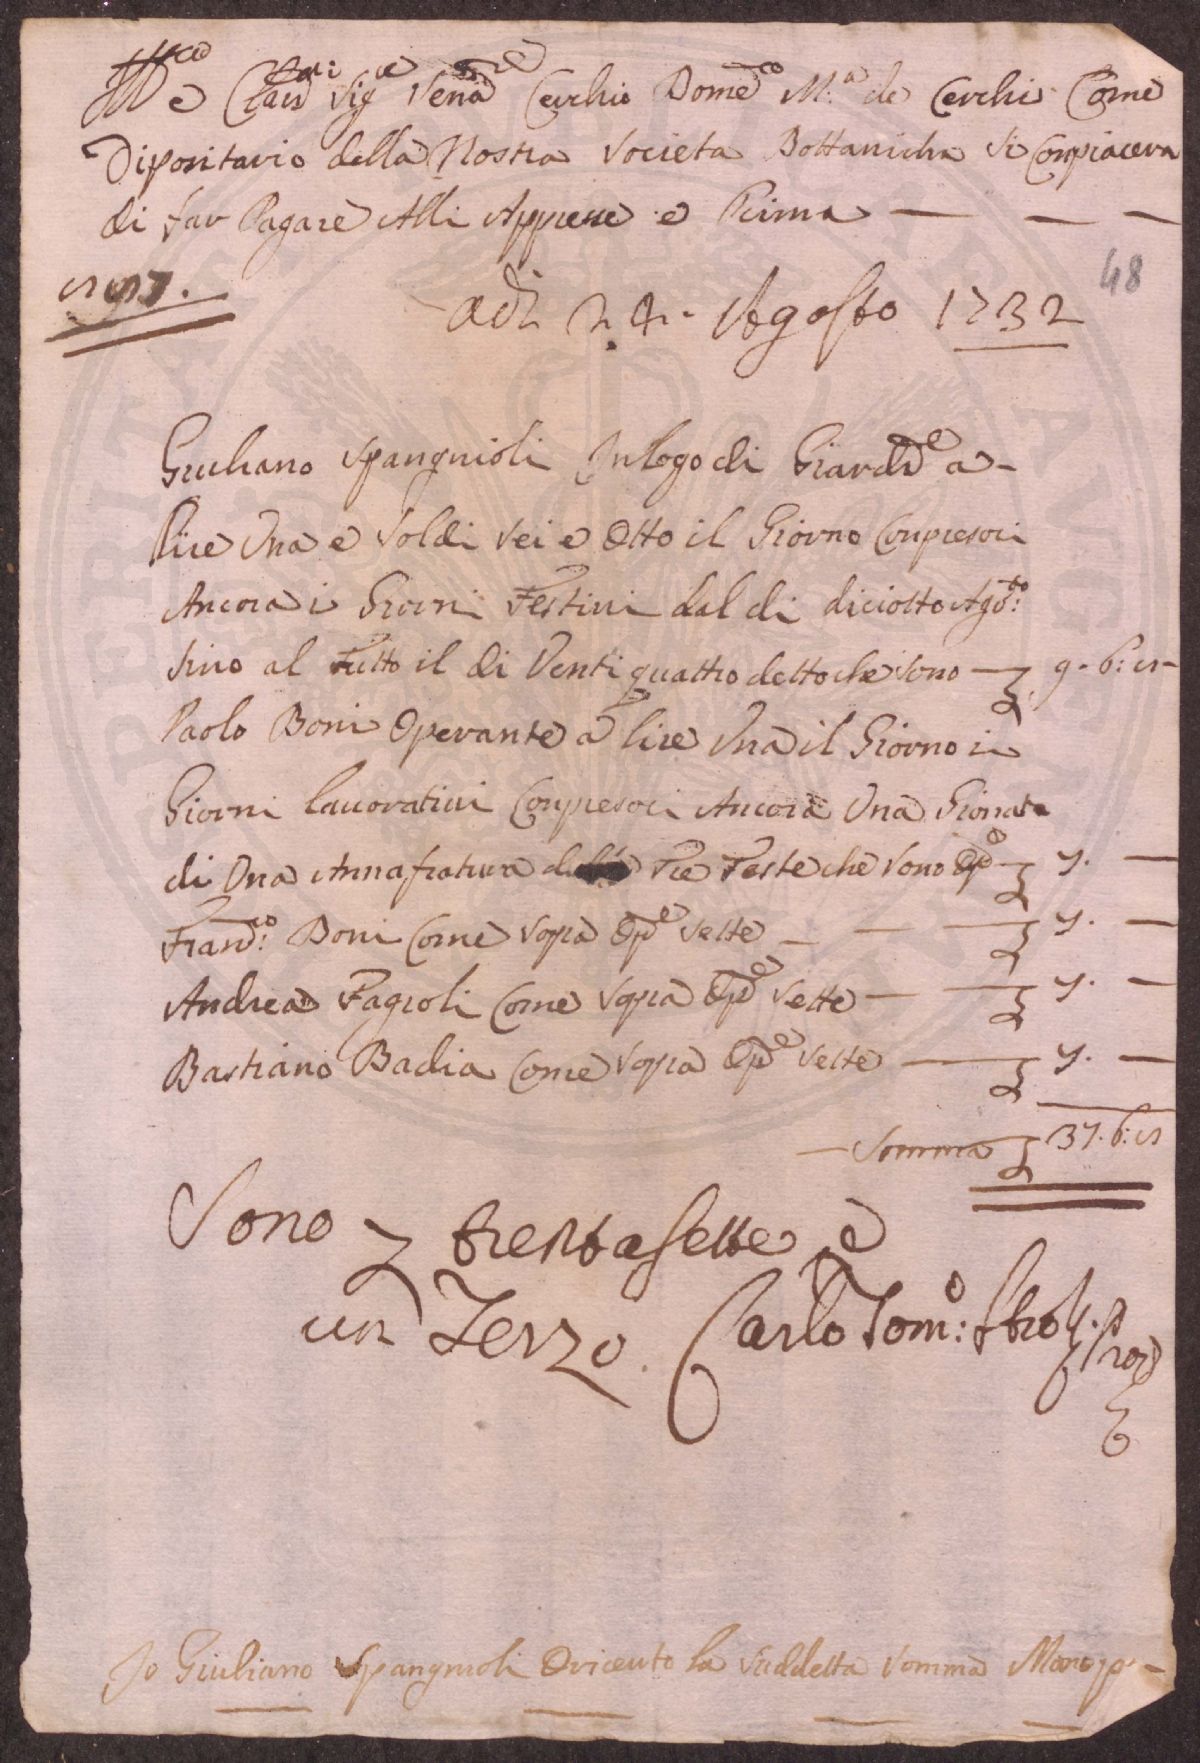 Ill.mo e Clar.mo Sig.re Sena.re Cerchio Dome.co M.a de Cerchi Come
Dipositario della Nostra Societa Bottanicha Si Conpiacera
di far Pagare Alli Appresse e Prima — — —
48
adi 24 Agosto 1732
Giuliano Spangnioli Inlogo di Giard.e a -
Lire Una e Soldi Sei e Otto il Giorno Conpresoci
Ancora i Giorni Festiui dal di diciotto Ago.to:
Sino al Tutto il di Venti quattro detto che Sono — 9. 6: 8
Paolo Boni Operante a lire Una il Giorno i
Giorni lauoratiui Conpresoci Ancora Una Gionata
di Una Annafiatura Tre Feste che Sono Op.e 7. —
Fran.co: Boni Come Sopra Op.e Sette — — — 7. —
Andrea Fagioli Come Sopra Op.e Sette — — 7. —
Bastiano Badia Come Sopra Op.e Sette — 7. —
— Somma 37. 6: 8
Sono trentasette e
un Terzo. Carlo Tom.o: Stroz. Pro.e
Io Giuliano Spangnioli O riceuto la Suddetta Somma Mano pp.a —